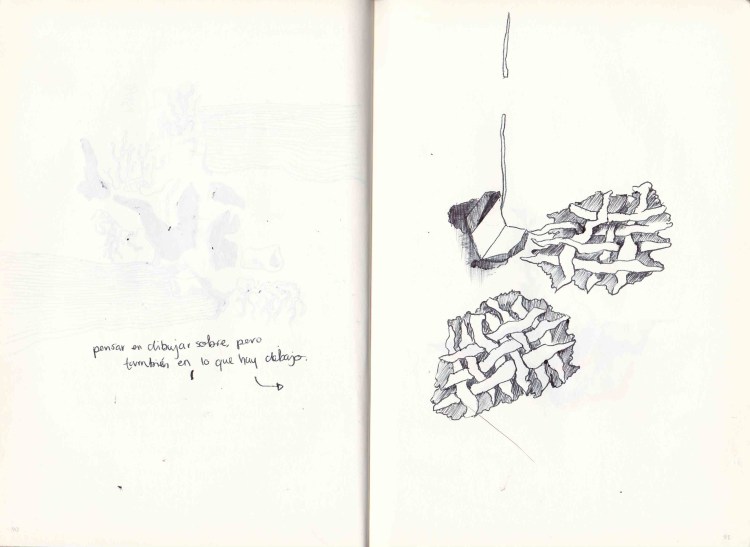 pensar en dibujar sobre, pero
también en lo que hay debajo.